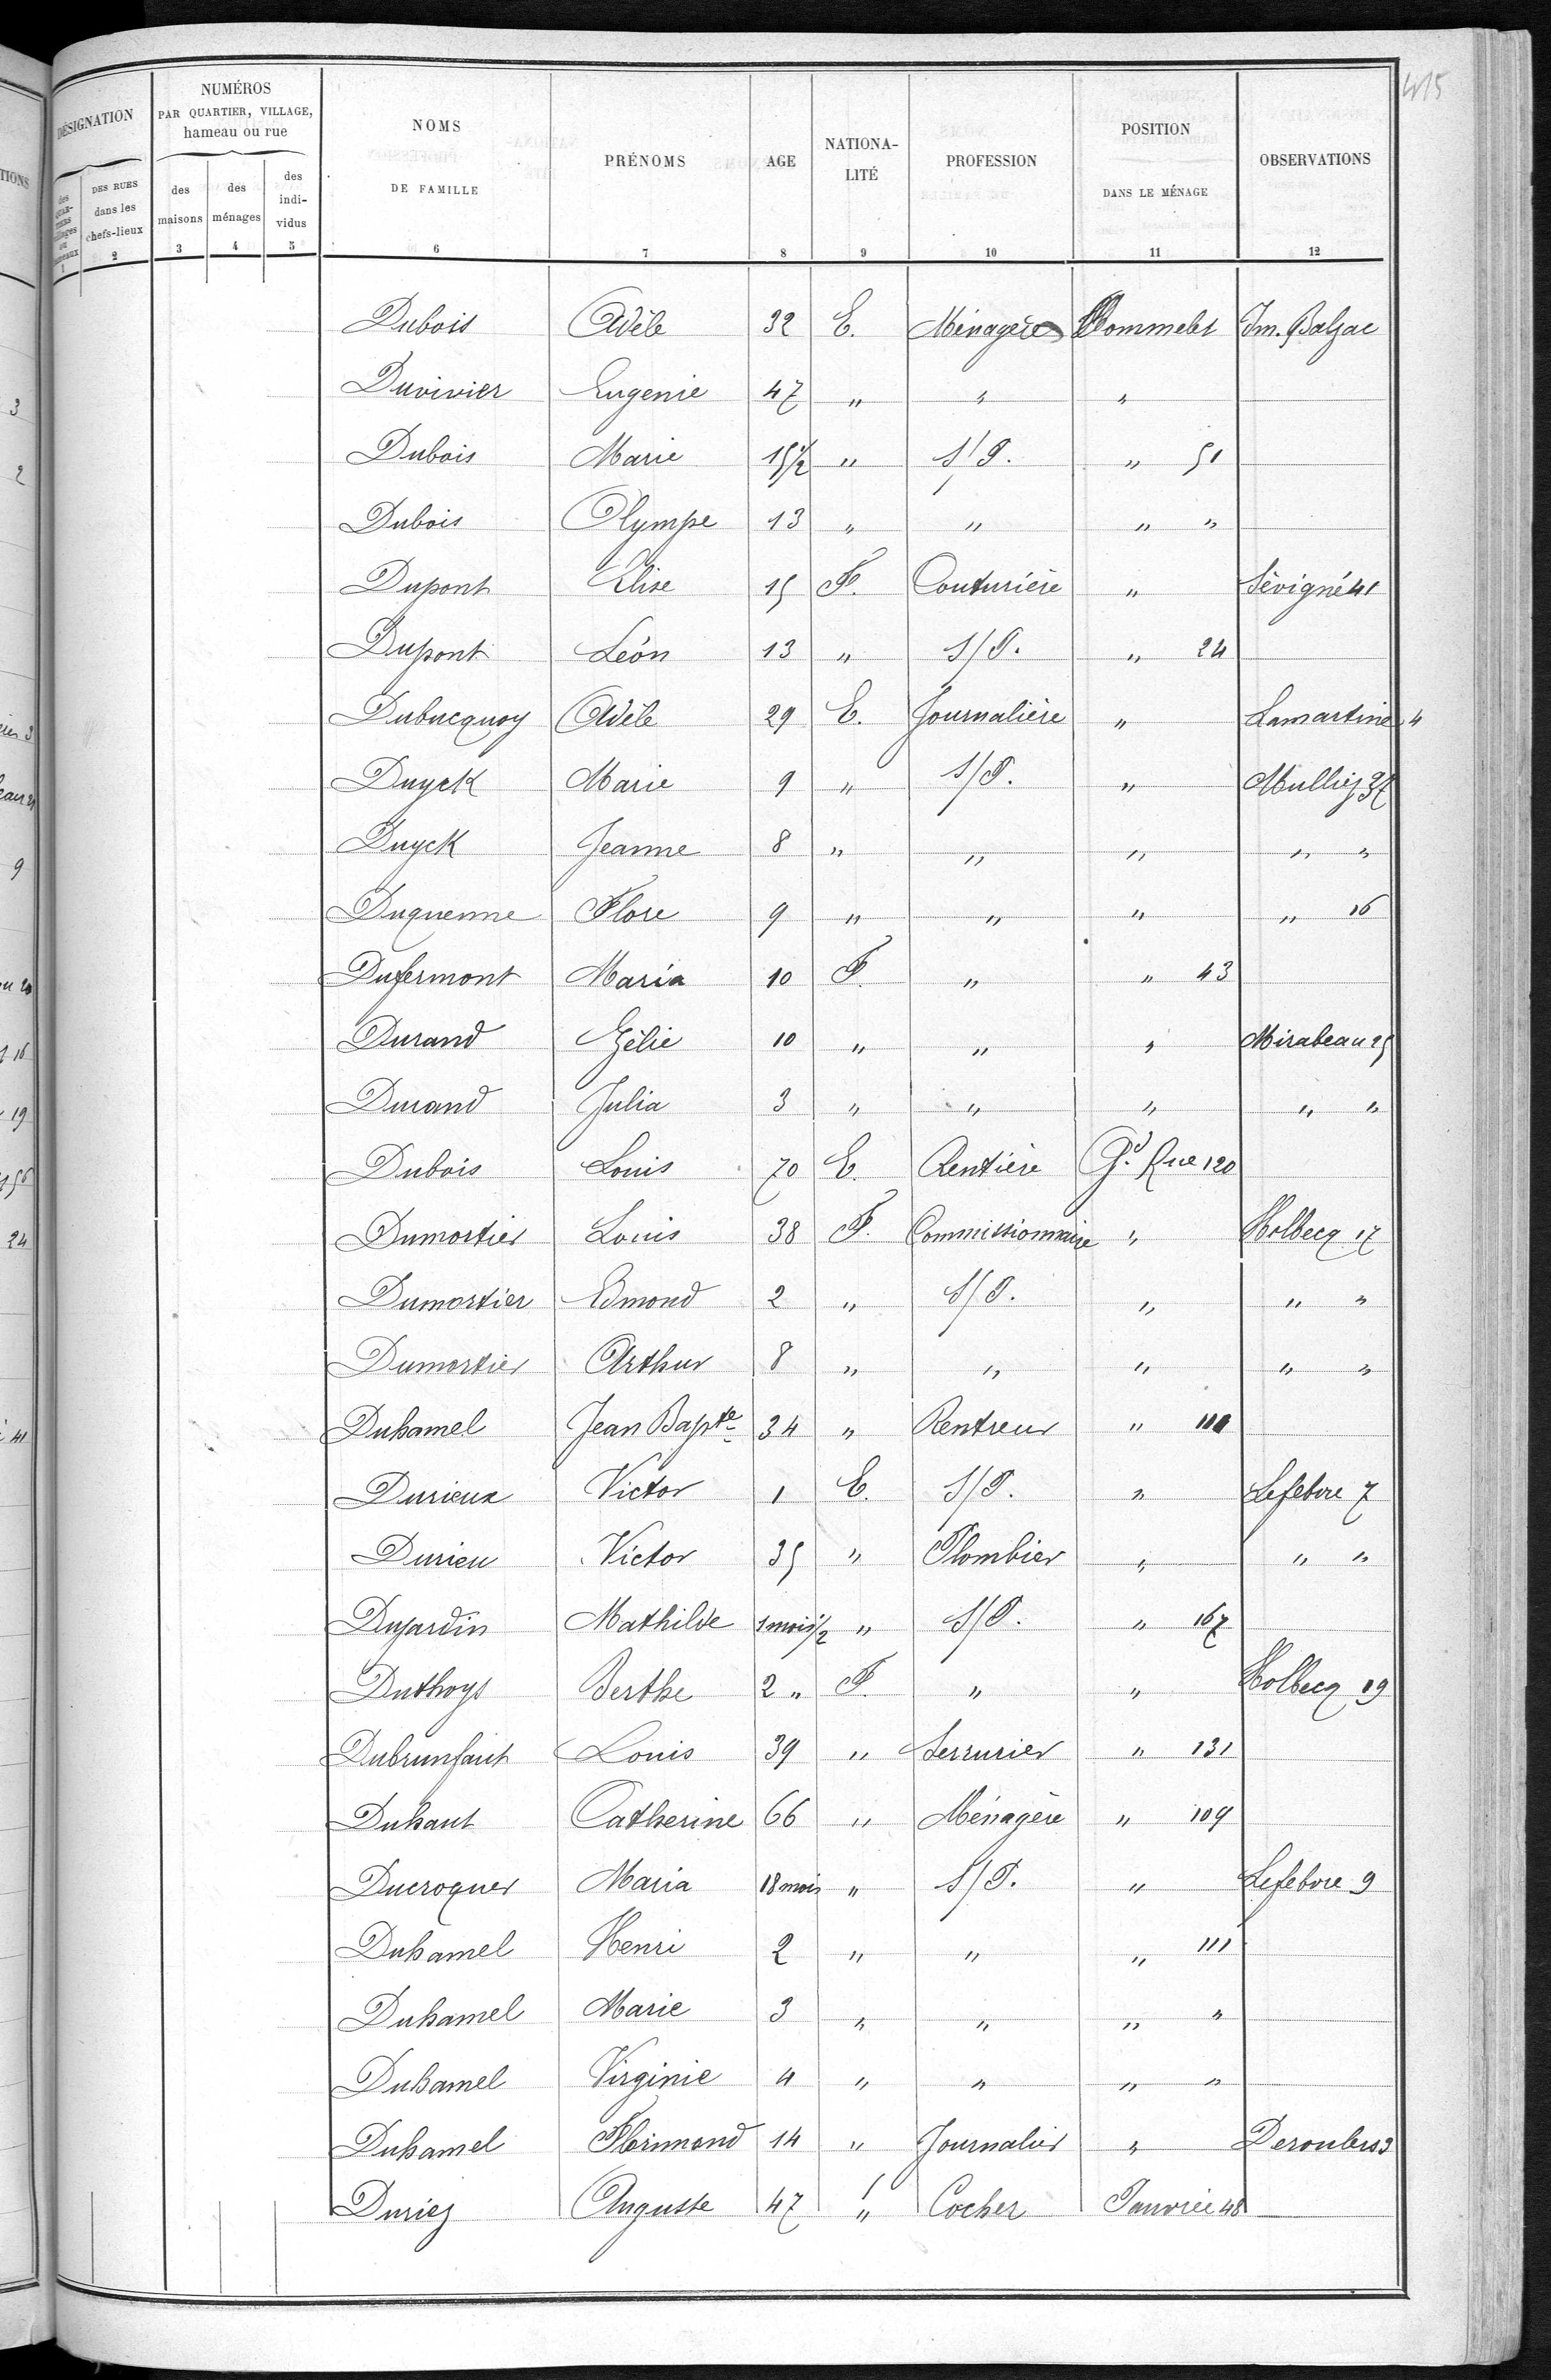 415
DÉSIGNATION
NUMÉROS
PAR QUARTIER, VILLAGE,
hameau ou rue
NOMS
DE FAMILLE
PRÉNOMS
AGE
NATIONA-
LITÉ
PROFESSION
POSITION
DANS LE MÉNAGE
OBSERVATIONS
DES RUES
dans les
chefs-lieux
des
maisons
des
ménages
des
indi-
vidus
1 2 3 4 5 6 7 8 9 10 11 12
Dubois Adèle 32 E. Ménagère Dommelet Im. Balzac
Duvivier Eugenie 47 " " "
Dubois Marie 15 1/2 " S/P. " 51
Dubois Olympe 13 " " " "
Dupont Elise 15 F. Couturière " Sévigné 41
Dupont Léon 13 " S/P. " 24
Dubucquoy Adèle 29 E. Journalière " Lamartine 4
Duyck Marie 9 " S/P. " Mulliez 37
Duyck Jeanne 8 " " " " "
Duquenne Flore 9 " " " " 16
Dufermont Maria 10 F. " " 43
Durand Zélie 10 " " " Mirabeau 25
Durand Julia 3 " " " " "
Dubois Louis 70 E. Rentière Gd. Rue 120
Dumortier Louis 38 F. Commissionnaire " Holbecq 17
Dumortier Edmond 2 " S/P. " " "
Dumortier Arthur 8 " " " " "
Duhamel Jean Bapte 34 " Rentreur " 111
Durieux Victor 1 E. S/P. " Lefebvre 7
Durieu Victor 35 " Plombier " " "
Dujardin Mathilde 1 mois 1/2 " S/P. " 167
Duthoys Berthe 2 " F. " " Holbecq 19
Dubrunfaut Louis 39 " Serrurier " 131
Duhaut Catherine 66 " Ménagère " 109
Ducroquer Maria 18 mois " S/P. " Lefebvre 9
Duhamel Henri 2 " " " 111
Duhamel Marie 3 " " " "
Duhamel Virginie 4 " " " "
Duhamel Florimond 14 " Journalier " Deroubers 3
Duriez Auguste 47 " Cocher Tauvrée 48